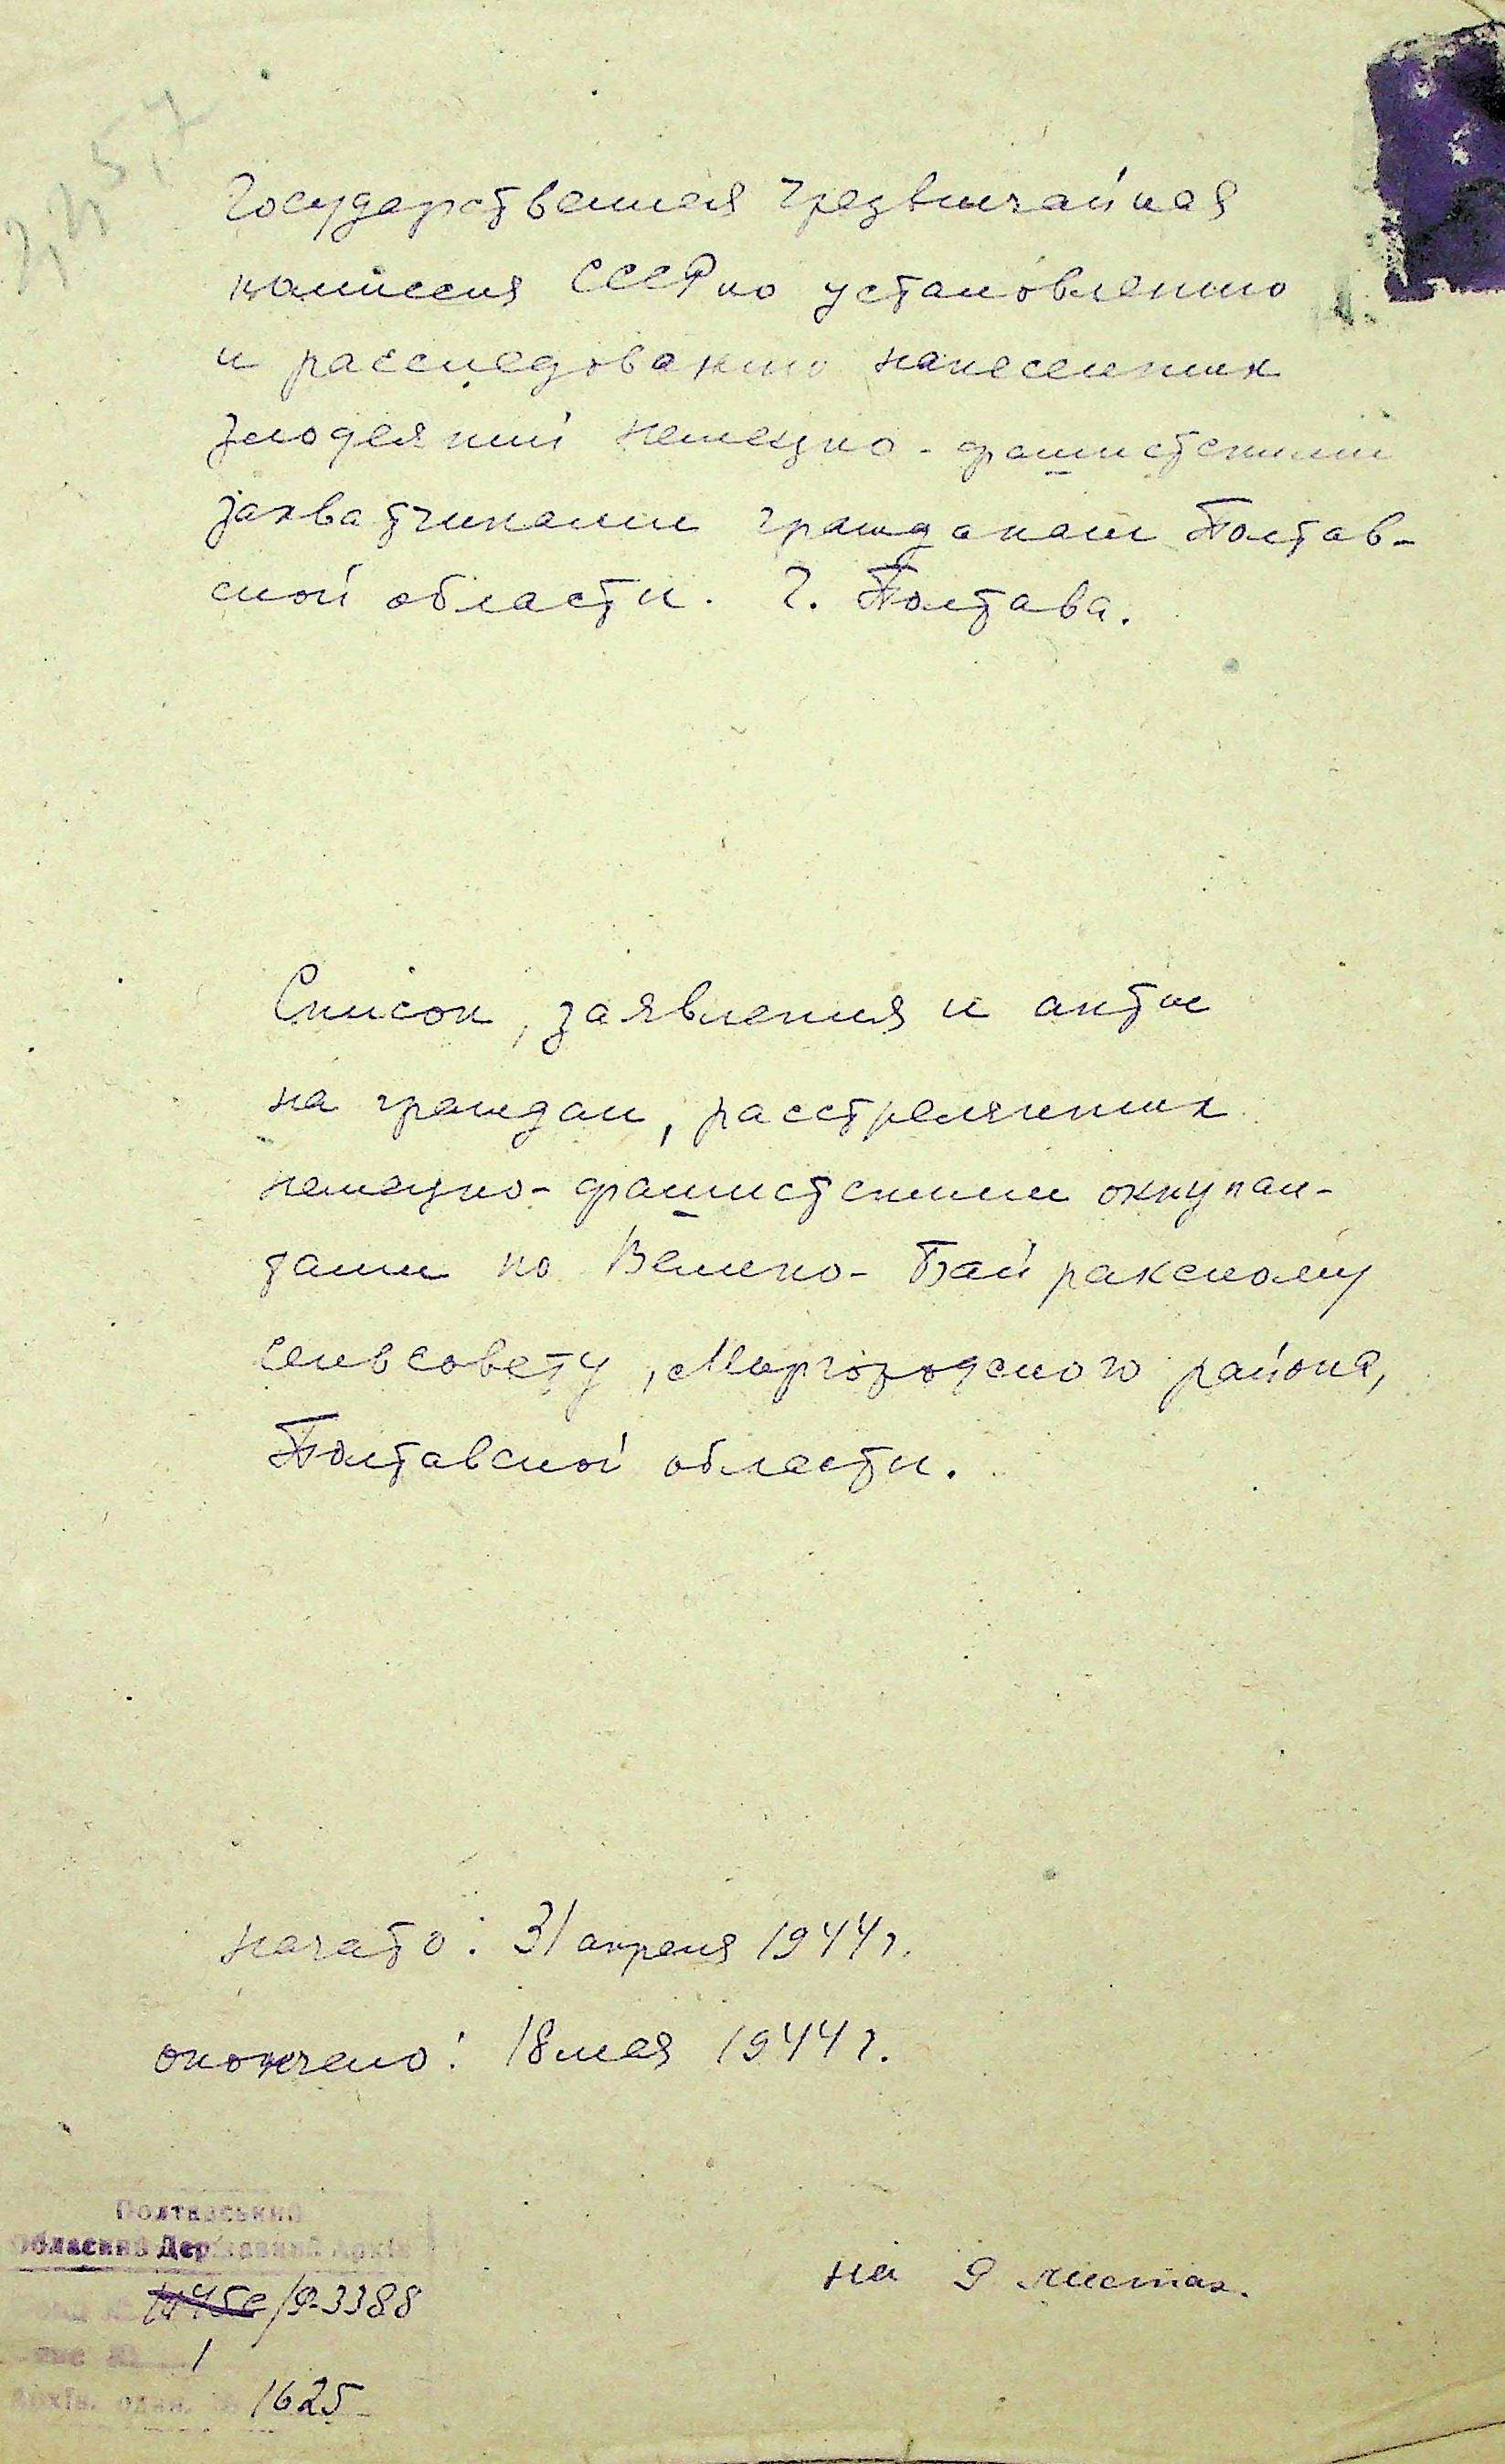 Государственная Чрезвычайная
комиссия СССР по установлению
и расследованию нанесенных
злодеяний немецко-фашистскими
захватчиками гражданам Полтав-
ской области. г. Полтава.
Список, заявления и акты
на граждан, расстрелянных
немецко-фашистскими оккупан-
тами по Велико-Байракскому
сельсовету, Миргородского района,
Полтавской области.
начато: 31 апреля 1944 г.
окончено: 18 мая 1944 г.
на 9 листах.
Полтавський
Обласний Державний Архів
Р-3388
1
Архів. один. № 1625